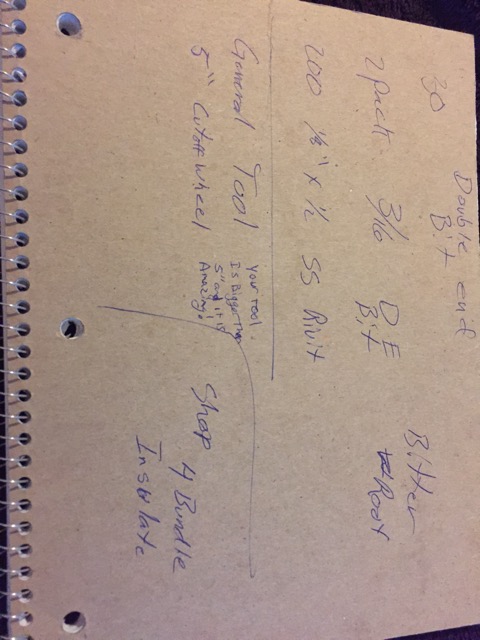 Double end
Bit
30
2 pack 3/16 D E
Bit
Bitter
Root
200 1/8" x 1/2 SS Rivit
General Tool
5" Cutoff wheel
Your tool
Is Bigger than
5" and it is
Amazing!
Shop
4 Bundle
Insulate